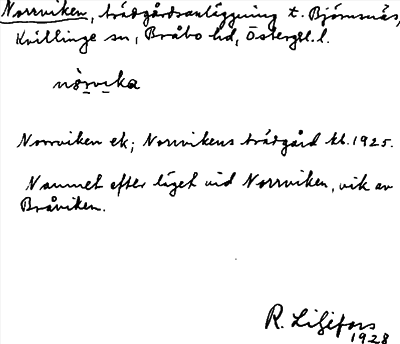 Norrviken, trädgårdsanläggning t. Björnsnäs,
Kvillinge sn, Bråbo hd, Östergötl. l.
nȯrvika
Norrviken ek; Norrvikens trädgård tk. 1925.
Namnet efter läget vid Norrviken, vik av
Bråviken.
R. Liljefors
1928